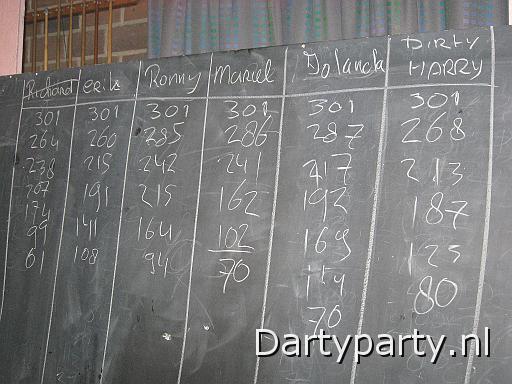 Richard erik Ronny Marcel Jolanda DIRTY HARRY
301 301 301 301 301 301
264 260 285 286 287 268
238 215 242 241 217 213
207 191 215 162 192 187
174 141 164 102 169 125
99 108 94 70 80
61 70
Dartyparty.nl